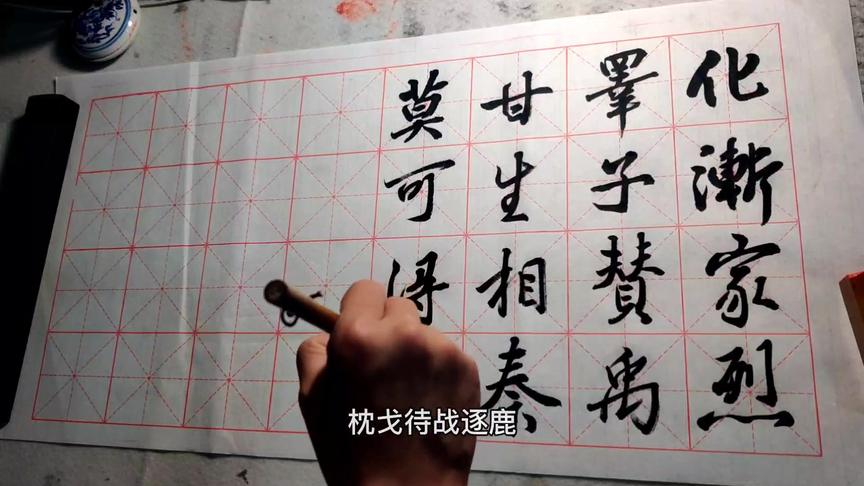 化漸家烈
睪子賛禹
甘生相奏
莫可淂
枕戈待战逐鹿